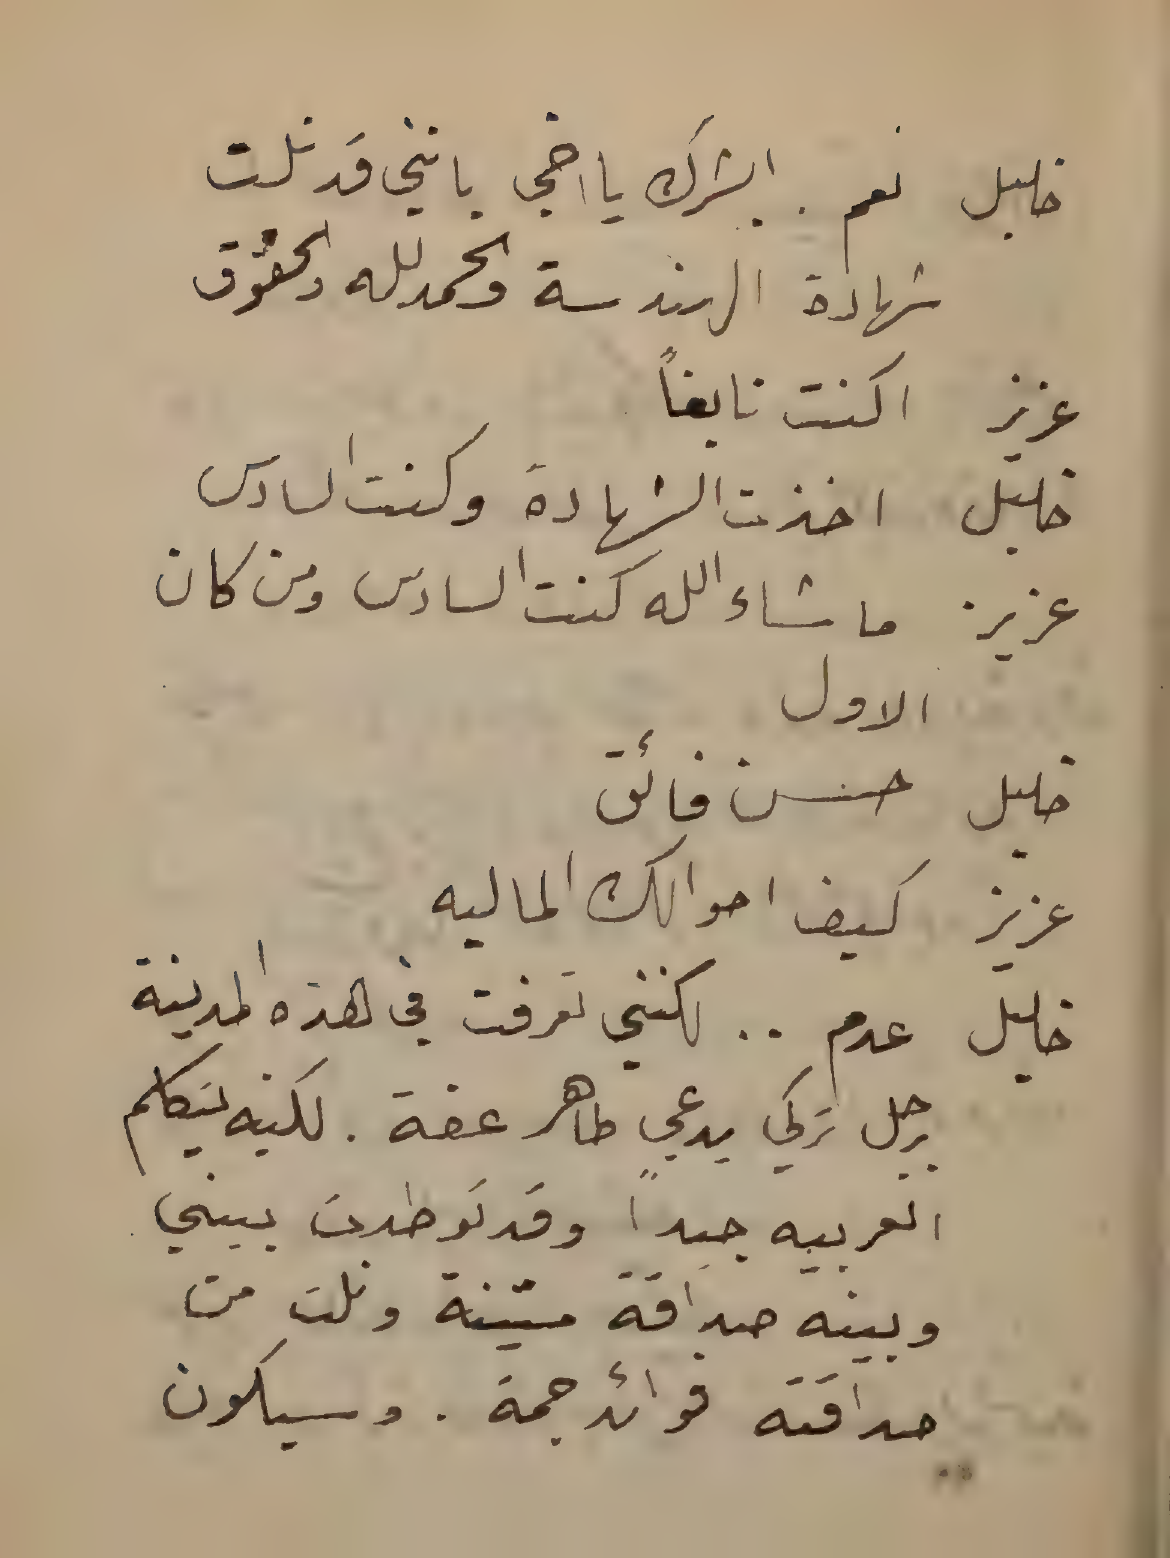 خليل نعم . ابشرك يا اخي بانني قد نلت
شهادة الهندسة والحمد لله والحقوق
عزيز اكنت نابغاً
خليل اخذت الشهادة وكنت السادس
عزيز ما شاء الله كنت السادس ومن كان
الاول
خليل حسن فائق
عزيز كيف احوالك الماليه
خليل عدم .. لكنني تعرفت في هذه المدينة
برجل تركي يدعي طاهر عفة . لكنه يتكلم
العربيه جيداً وقد توطدت بيني
وبينه صداقة متينة ونلت من
صداقته فوائد جمة . وسيكون